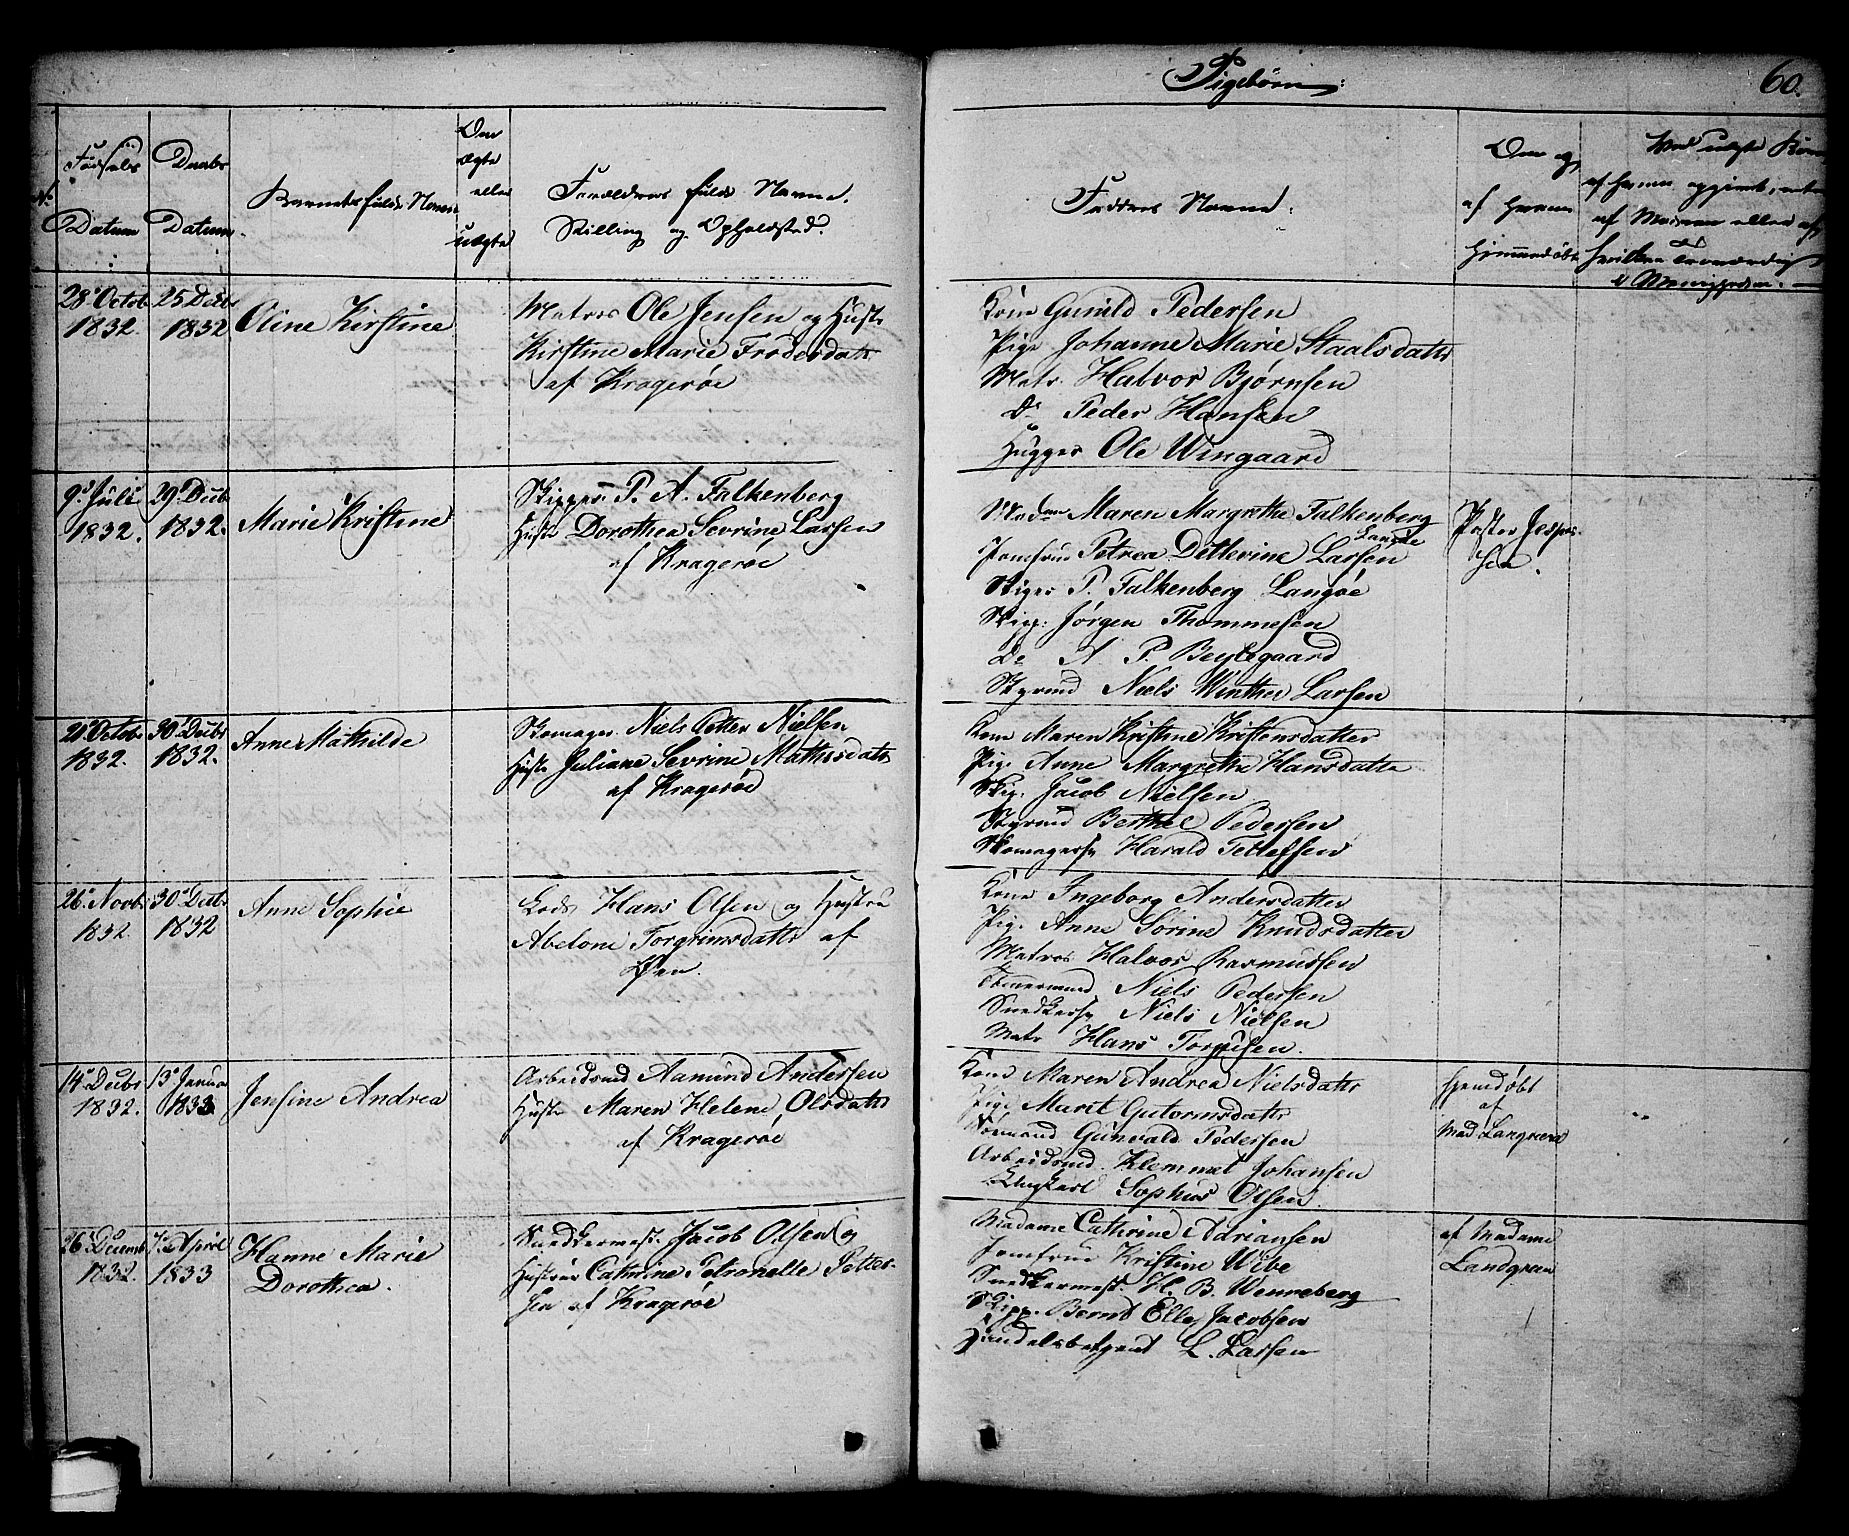 Pigebørn:
60.
No
Fødsels Datum
Daabs Datum.
Barnets fulde Navn
Om ægte eller uægte
Forældres fulde Navne. Stilling og Opholdsted.
Fadderes Navne:
Om og af hvem hjemmedøbt
28de Octob 1832.
25 Decbr 1832
Oline Kirstine
Matros Ole Jensen og Hustr
Kirstine Marie Frodesdatr
af Kragerøe
Kone Gunild Pedersen
Pige Johanne Marie Staalsdatr
Matr. Halvor Bjørnsen
Do Peder Hansen
Hugger Ole Wingaard
9de Juli 1832.
29de Decb 1832.
Marie Kristine
Skipper P. A. Falkenberg
Hustr Dorothea Sevrine Larsen
af Kragerøe
Madam Maren Margrethe Falkenberg
Langøe
Jomfrue Petrea Ditlevine Larsen
Skiper P. Falkenberg Langøe
Skipp: Jørgen Thommesen
Do A. P. Beylegaard
Styrmd Niels Winther Larsen
Pastor Jespersen.
21de Octobr 1832.
30te Decbr 1832.
Anne Mathilde
Skomager Niels Petter Nielsen
Hustr Juliane Sevrine Mathisdatr
af Kragerøe
Kone Maren Kristine Kristensdatter
Pig. Anne Margrethe Hansdatter
Skip. Jacob Nielsen
Styrmd Berthel Pedersen
Skomagersv Harald Tellefsen
26de Novbr 1832.
30te Decbr 1832
Anne Sophie
Lods Hans Olsen og Hustru
Abelone Torgrimsdatr af
Øen.
Kone Ingeborg Andersdatter
Pig. Anne Sørine Knudsdatter
Matros Halvor Rasmussen
Tømermand Niels Pedersen
Snedkersv Niels Nielsen
Matr Hans Torgrisen.
14de Decbr 1832.
13de Janua 1833
Jensine Andrea
Arbeidsmd Aamund Andersen
Hustr Maren Helene Olsdatr
af Kragerøe
Kone Maren Andrea Nielsdatr
Pige Marit Gutormsdatr
Sømand Gunvald Pedersen
Arbeidsmd. Klemmet Johansen
Ungkarl Sophus Olsen.
hjemdøbt
af
Mad Langreen
26de Decemb 1832.
7de April 1833
Hanne Marie
Dorothea.
Snedkermest. Jacob Olsen og
Hustrue Cathrine Petronelle Petter-
sen af Kragerøe
Madame Cathrine Adriansen
Jomfrue Kristine Wibe
Snedkermest. H. B. Wenneberg
Skipp. Bernt Elle Jacobsen
Handelsbetjent L. Larsen
af Madame
Landgreen